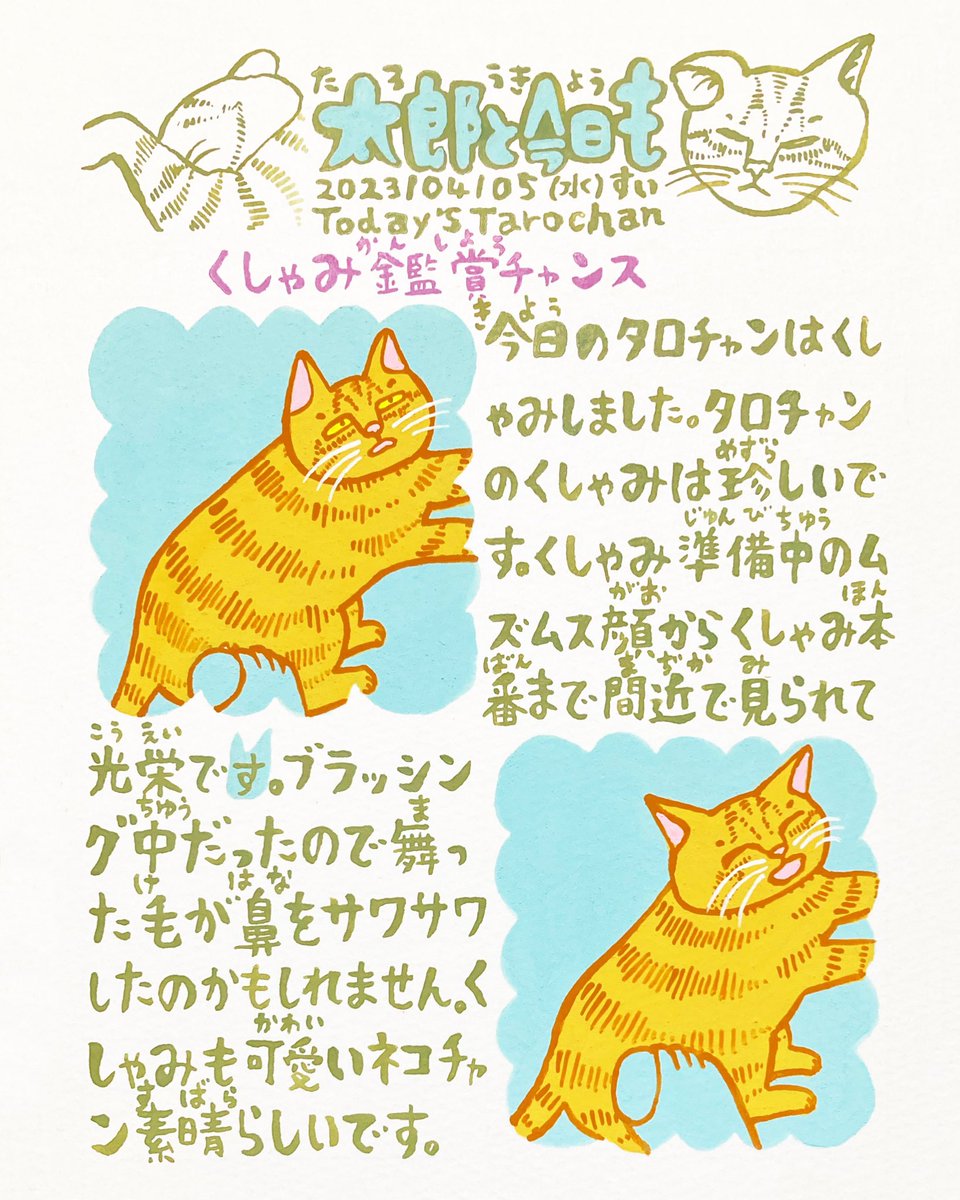 たろうきょう
太郎と今日も
2023/04/05(水)すい
Today's Tarochan
かんしょう
くしゃみ鑑賞チャンス
きょう
今日のタロチャンはくし
ゃみしました。タロチャン
めずら
のくしゃみは珍しいで
じゅんびちゅう
す。くしゃみ準備中のム
がお ほん
ズムズ顔からくしゃみ本
ばん まぢか み
番まで間近で見られて
こうえい
光栄です。ブラッシン
ちゅう ま
グ中だったので舞っ
け はな
た毛が鼻をサワサワ
したのかもしれません。く
かわい
しゃみも可愛いネコチャ
すば
ン素晴らしいです。